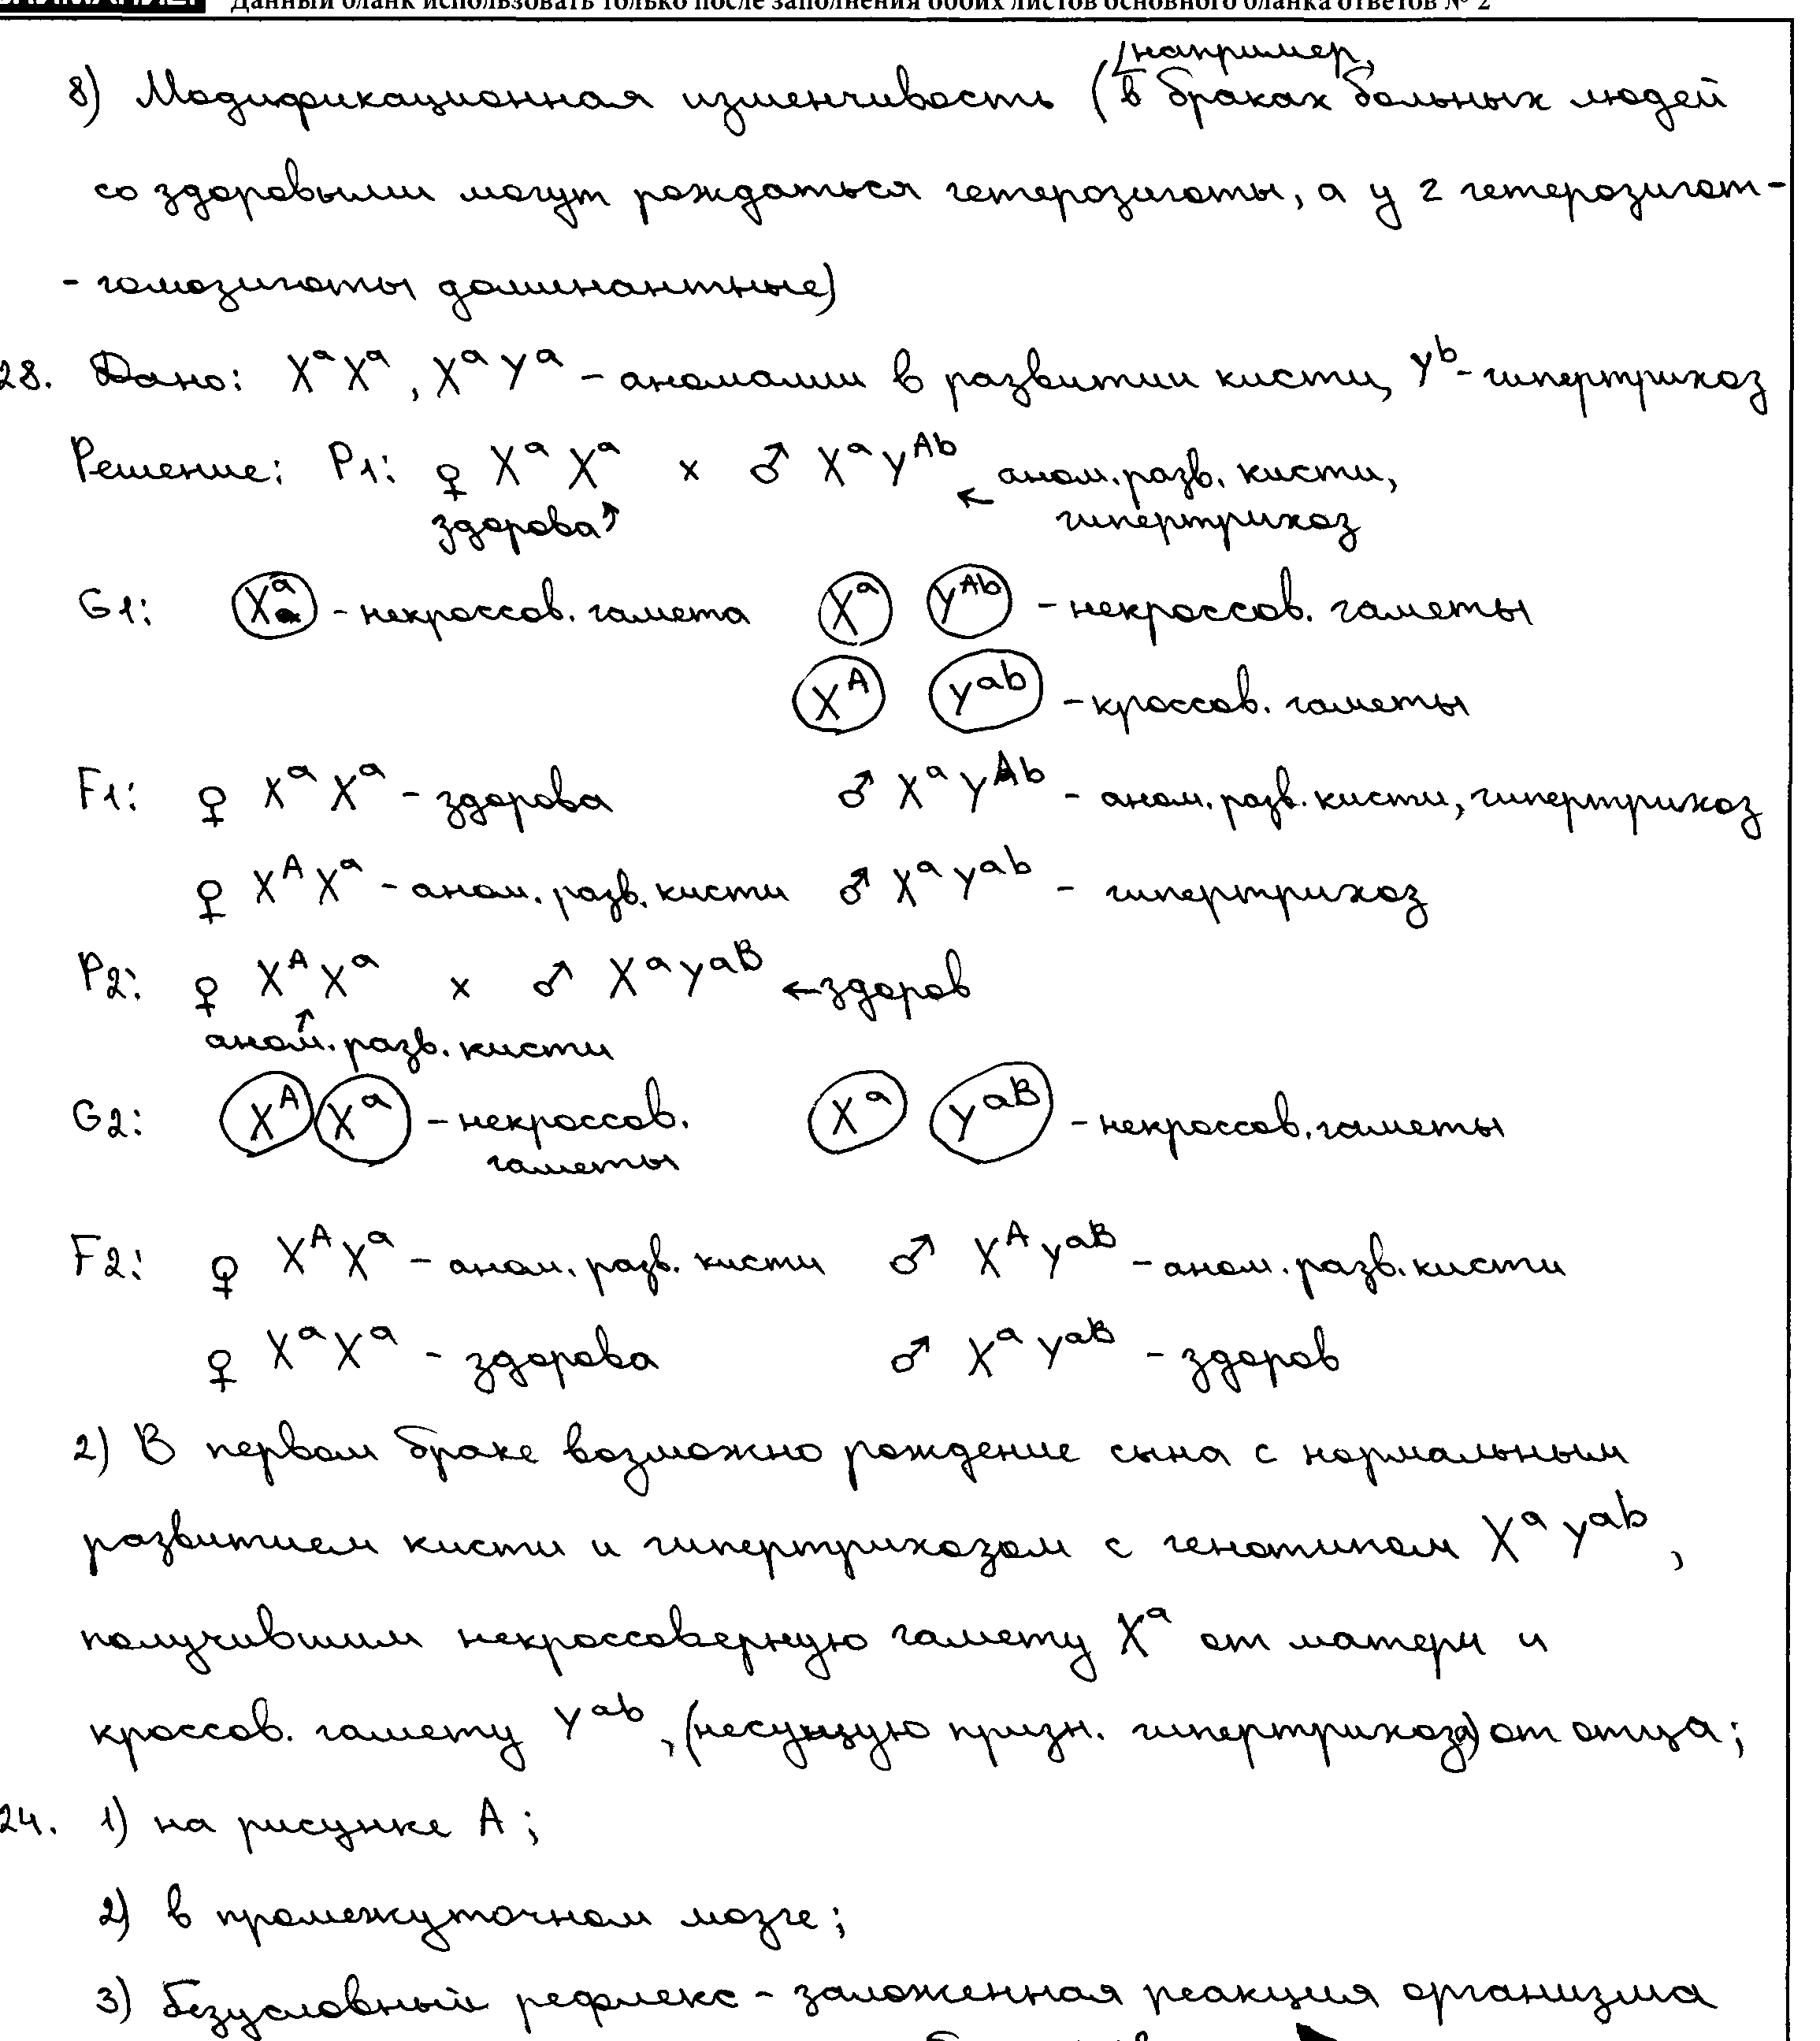 Данный бланк использовать только после заполнения обоих листов основного бланка ответов № 2
например,
8) Модификационная изменчивость (в браках больных людей
со здоровыми могут рождаться гетерозиготы, а у 2 гетерозигот-
- гомозиготы доминантные)
28. Дано: XᵃXᵃ, XᵃYᵃ - аномалии в развитии кисти, Yᵇ - гипертрихоз
Решение: P1: ♀ XᵃXᵃ × ♂ XᵃYᴬᵇ ← аном. разв. кисти,
здорова↑ гипертрихоз
G1: Xᵃ - некроссов. гамета Xᵃ Yᴬᵇ - некроссов. гаметы
Xᴬ Yᵃᵇ - кроссов. гаметы
F1: ♀ XᵃXᵃ - здорова ♂ XᵃYᴬᵇ - аном. разв. кисти, гипертрихоз
♀ XᴬXᵃ - аном. разв. кисти ♂ XᵃYᵃᵇ - гипертрихоз
P2: ♀ XᴬXᵃ × ♂ XᵃYᵃᴮ ← здоров
↑
аном. разв. кисти
G2: Xᴬ Xᵃ - некроссов. Xᵃ Yᵃᴮ - некроссов. гаметы
гаметы
F2: ♀ XᴬXᵃ - аном. разв. кисти ♂ XᴬYᵃᴮ - аном. разв. кисти
♀ XᵃXᵃ - здорова ♂ XᵃYᵃᴮ - здоров
2) В первом браке возможно рождение сына с нормальным
развитием кисти и гипертрихозом с генотипом XᵃYᵃᵇ,
получившим некроссоверную гамету Xᵃ от матери и
кроссов. гамету Yᵃᵇ, (несущую призн. гипертрихоза) от отца;
24. 1) на рисунке А;
2) в промежуточном мозге;
3) Безусловный рефлекс - заложенная реакция организма